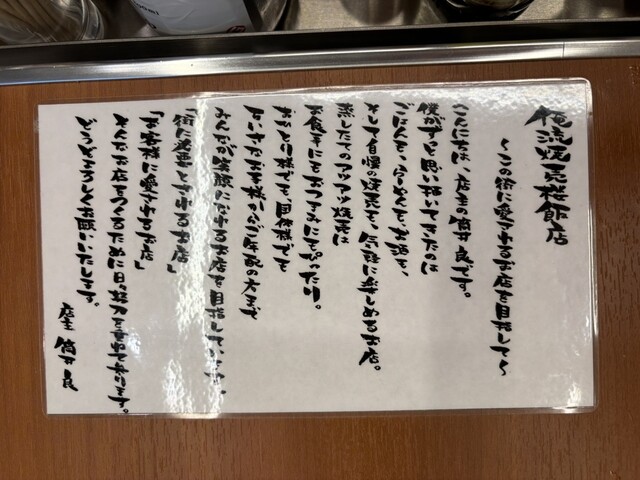 俺流焼売楼飯店
～この街に愛されるお店を目指して～
こんにちは、店主の筒井良です。
僕がずっと思い描いてきたのは
ごはんも、らーめんも、お酒も、
そして自慢の焼売も、気軽に楽しめるお店。
蒸したてのアツアツ焼売は
お食事にもおつまみにもぴったり。
おひとり様でも、団体様でも
小さなお子様からご年配の方まで
みんなが笑顔になれるお店を目指しています。
「街に必要とされるお店」
「お客様に愛されるお店」
そんなお店をつくるために日々努力を重ねて参ります。
どうぞよろしくお願いいたします。
店主 筒井 良